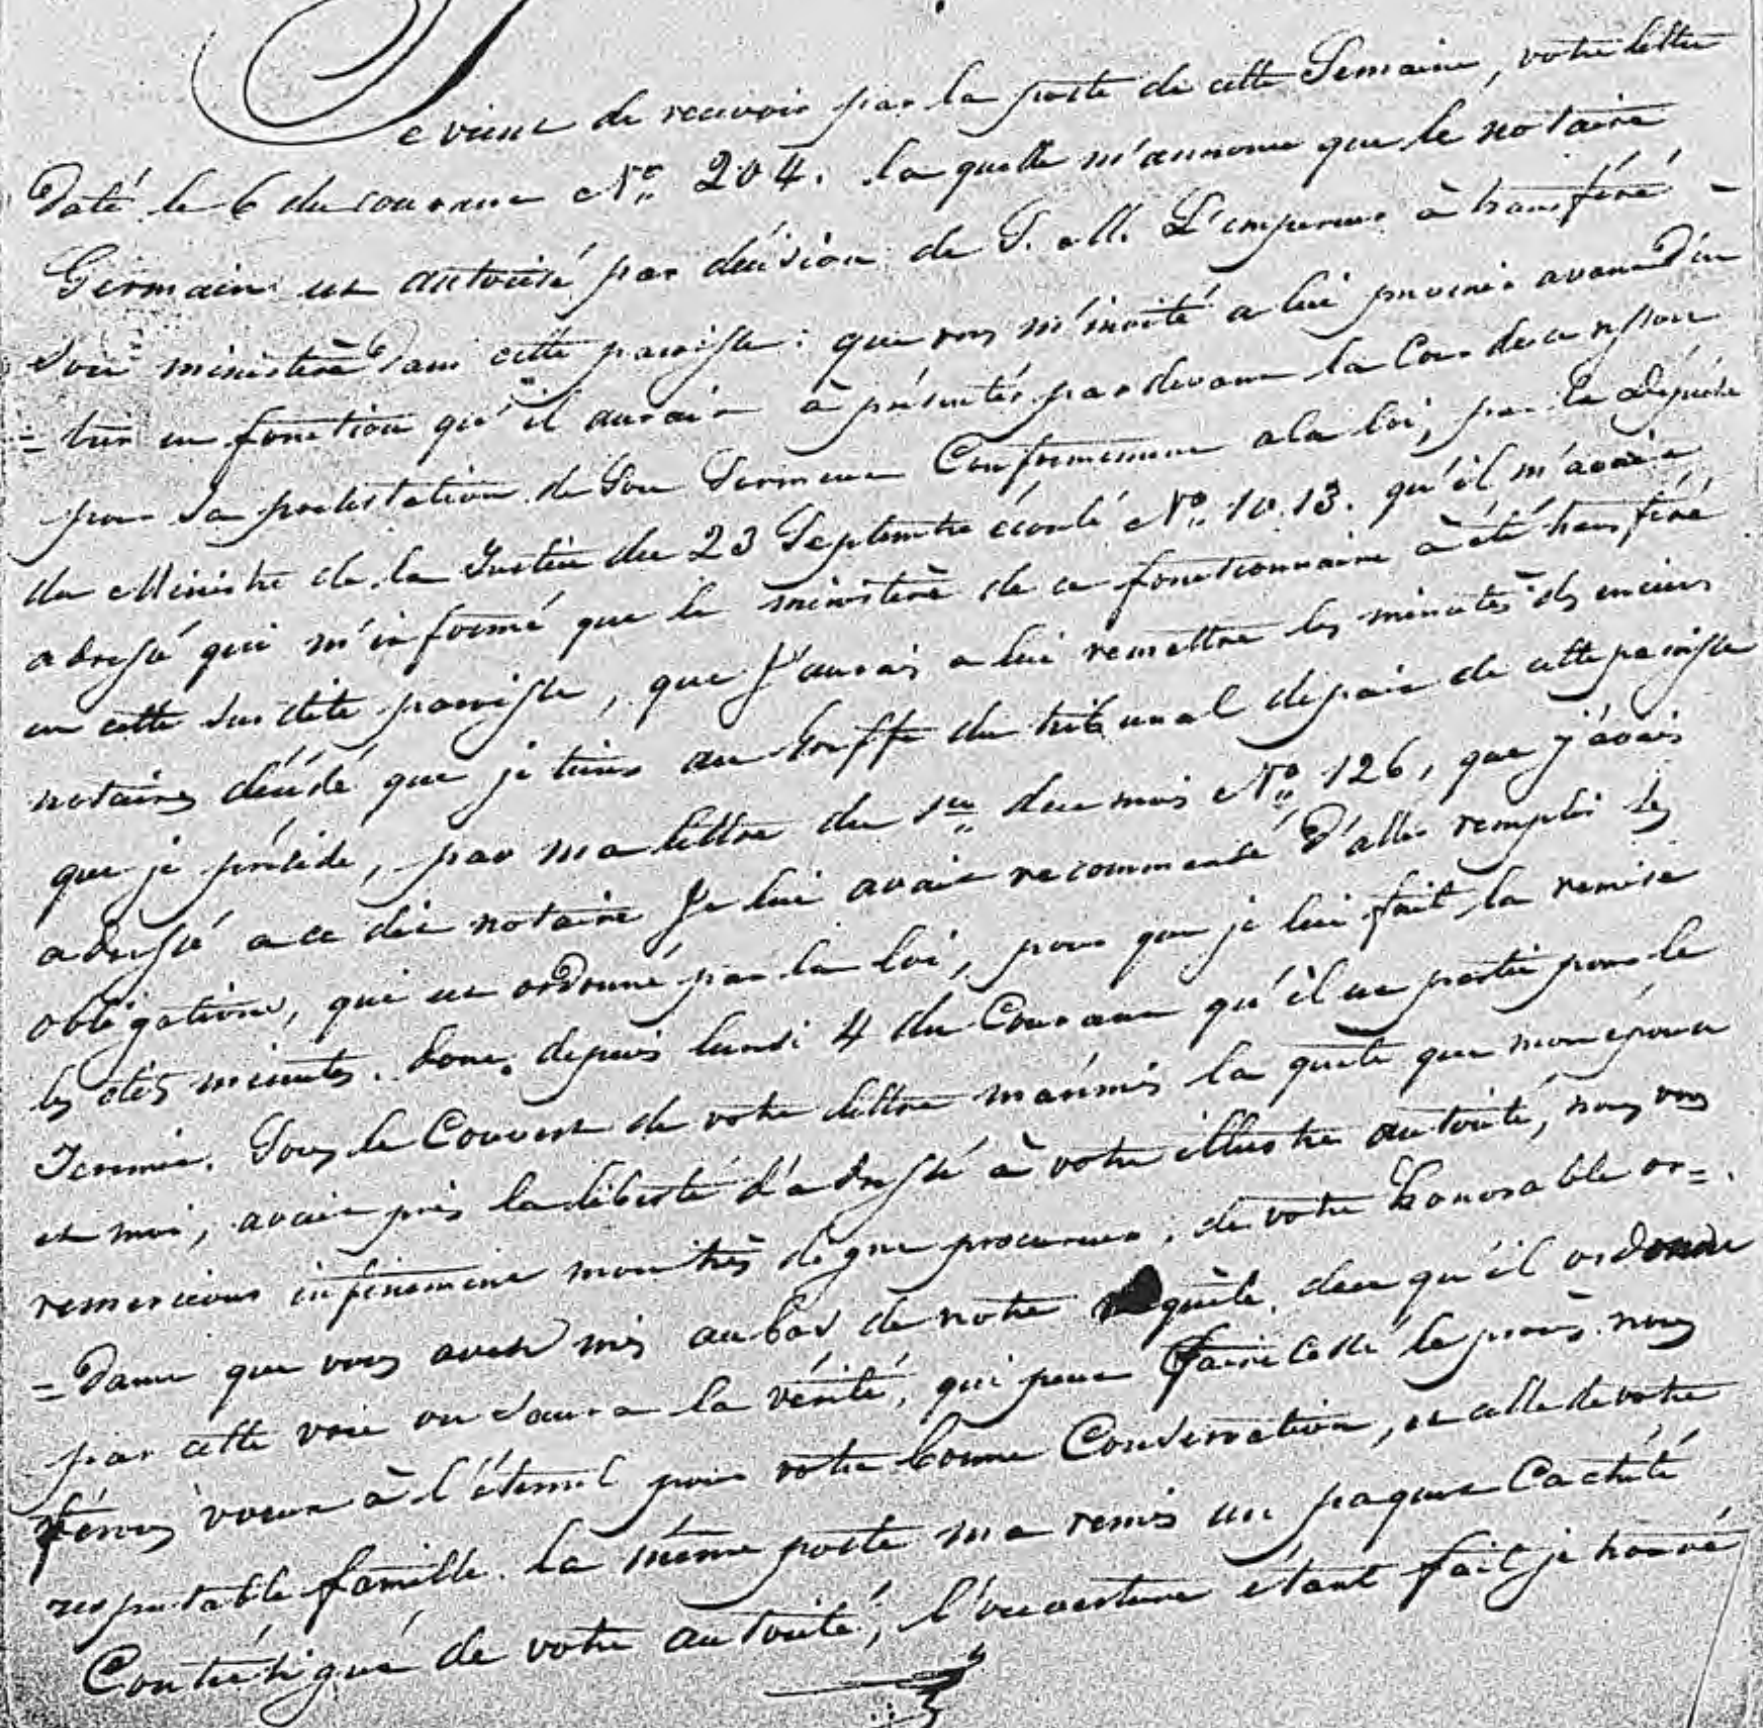 Je vient de recevoir par la poste de cette Semaine, votre lettre
Daté le 6 du courant N° 204. la quelle m'annonce que le notaire
Germain est autorisé par décision de S. M. L'empereur à transféré
son ministère Dans cette paroisse: que vous m'invité a lui prevenir avant D'en
=trer en fonction qu'il aurait à présentés pardevant la Cour de ce ressort
pour sa prestation de Son Serment Conformement a la loi, par la Dépêche
du Ministre de la Justice du 23 Septembre écoulé N° 1013. qu'il m'avait
adressé qui m'informé que le ministère de ce fonctionnaire à été transféré
en cette sus dite paroisse, que J'aurais a lui remettre les minutes des enciens
notaires décédé que je tiens au Greffe du tribunal depaix de cette paroisse
que je préside, par ma lettre du 1er du mois N° 126, que j'avais
adressé a ce dit notaire Je lui avait recommandé D'aller remplir les
obligations, qui est ordonné par la loi, pour que je lui fait la remise
les dtes minutes. donc. depuis lundi 4 du Courant qu'il est partie pour le
Jeremie. Sous le Couvert de votre lettre m'a rémis la quête que mon épouse
et moi, avait pris la liberté d'adressé à votre illustre autorité, nous vous
remercions infiniment mon très digne procureur, de votre honorable or=
=Dance que vous avez mis au bas de notre requête, des qu'il ordonne
par cette voie on saura la vérité, qui peut faire cessé le procès. nous
férons voeux à l'éternel pour votre bonne Conservation, et celle de votre
respectable famille. la même poste ma remis un paquet Cachété
Contrésigné de votre autorité, l'ouverture étant fait je trouvé